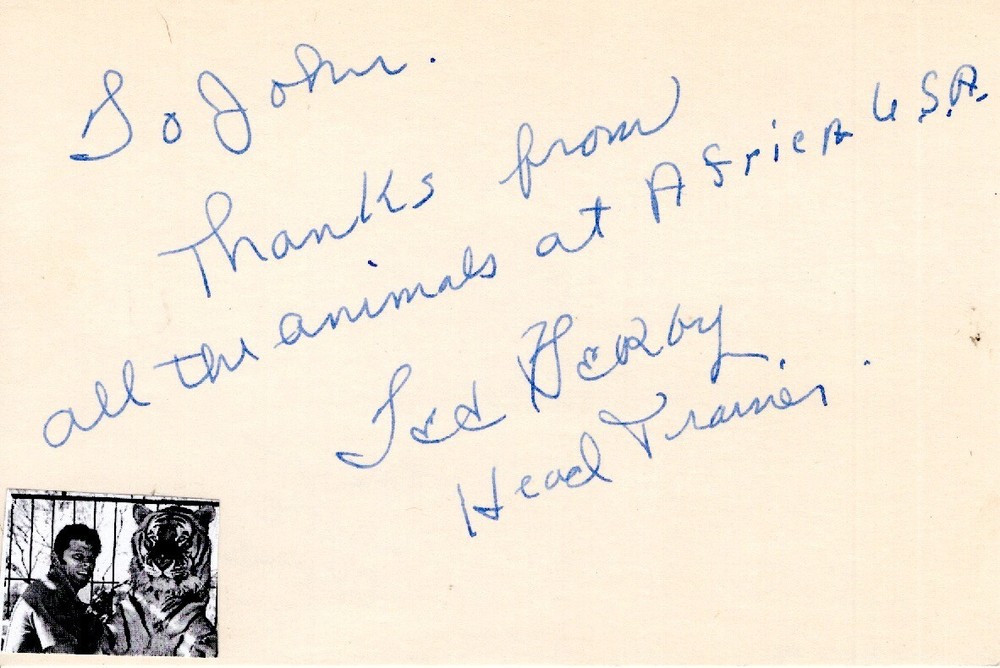 To John.
Thanks from
all the animals at Africa U.S.A.
Ted Derby.
Head Trainer.